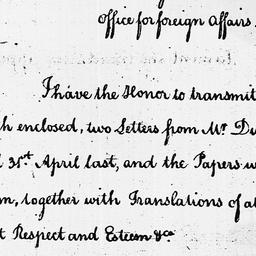 Office for foreign Affairs
I have the Honor to transmit
enclosed, two Letters from Mr. Du
31st. April last, and the Papers
together with Translations of
Respect and Esteem &ca.